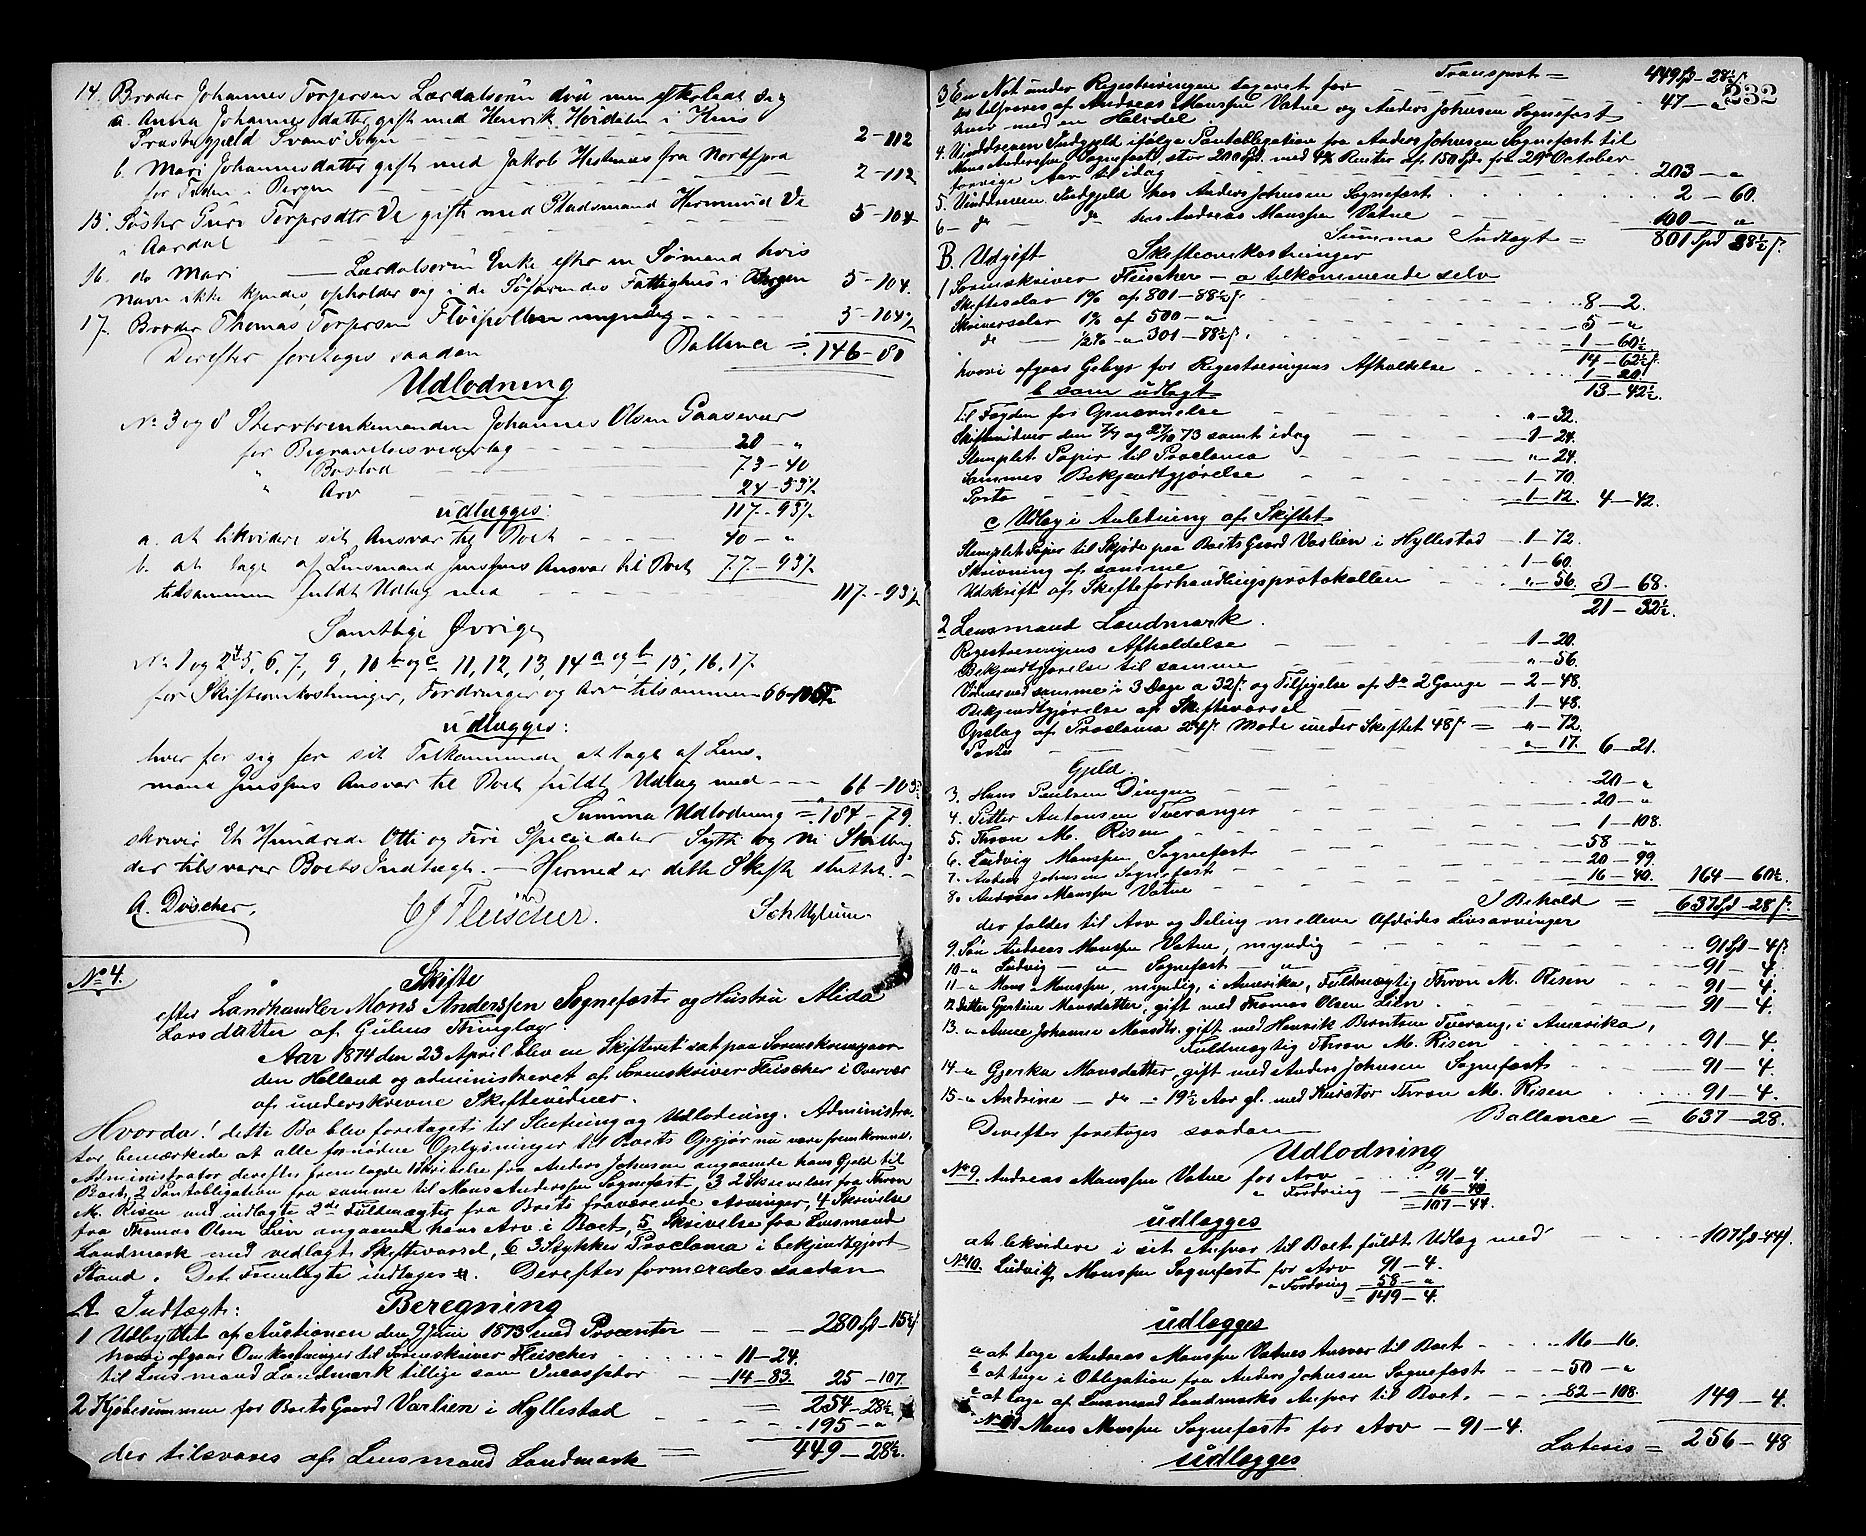 14. Broder Johannes Torgersen Lærdalsøren død men efterladt sig
a. Anna Johannesdatter gift med Henrik Høidalen i Kins
Præstegjeld Svanø Sogn 2-112
b. Mari Johannesdatter gift med Jakob fra Nordfjord
for Tiden i Bergen 2-112
15. Søster Guri Torgersdtr Ve gift med Pladsmand Hermund Ve
i Aardal 5-104
16. do Mari — Lærdalsøren Enke efter en Sømand hvis
navn ikke kjendes, opholder sig i de Søfarendes Fattighus i Bergen 5-104.
17. Broder Thomas Torgersen myndig 5-104
Ballance = 146-80
Derefter foretoges saadan
Udlodning
No 3 og 8 Stervboenkemanden Johannes Olsen Gaasevær
for Begravelsesvederlag 20-"
" Boslod 73-40
" Arv 24-53½
udlægges: 117-93½
a. at likvidere sit Ansvar til Boet 40-"
b. at tage af Lensmand Jensens Ansvar til Boet 77-93½
tilsammen fuldt Udlæg med 117-93½
Samtlige Øvrige
No 1 og 2, 5, 6, 7, 9, 10 b og c 11, 12, 13, 14 a og b 15, 16, 17.
for Skifteomkostninger, Fordringer og Arv tilsammen 66-105½
udlægges:
hver for sig for sit Tilkommende at tage af Lens-
mand Jensens Ansvar til Boet fuldt Udlæg med 66-105½
Summa Udlodning = 184-79.
skriver Et Hundrede Otti og Fire Speciedaler Sytti og Ni Skilling
der tilsvarer Boets Indtægt. — Hermed er dette Skifte sluttet. —
A. Døscher. CJ Fleischer.
No 4. Skifte
efter Landhandler Mons Anderssen Sognefæst og Hustru Alida
Larsdatter af Gulens Thinglag.
Aar 1874 den 23 April blev en Skifteret sat paa Sorenskrivergaar-
den Holland og administreret af Sorenskriver Fleischer i Overvær
af underskrevne Skiftevidner.
Hvorda! dette Bo blev foretaget til Slutning og Udlodning. Administra-
tor bemærkede at alle fornødne Oplysninger til Boets Opgjør nu vare fremkomne.
Administrator derefter fremlagde 1 Skrivelse fra Anders Johnsen angaaende hans Gjeld til
Boet, 2 Pantobligation fra samme til Mons Anderssen Sognefæst, 3 2 Skrivelser fra Thron
M. Risen med indlagte 2de Fuldmagter fra Boets fraværende Arvinger, 4 Skrivelse
fra Thomas Olsen Lien angaaende hans Arv i Boet, 5 Skrivelse fra Lensmand
Landmark med vedlagt Skiftevarsel, 6 3 Stykker Proclama i bekjendtgjort
Stand. Det Fremlagte indtages. Derefter formeredes saadan
A. Indtægt: Beregning
1 Udbyttet af Auctionen den 9 Juni 1873 med Procenter 280 Spd-15½ s
hvori afgaar Omkostninger til Sorenskriver Fleischer 11-24.
til Lensmand Landmark tillige som Incassator 14-83 25-107
254-28½
2 Kjøbesummen for Boets Gaard Varlien i Hyllestad 195-"
der tilsvares af Lensmand Landmark = 449-28½.
232
Transport = 449 Spd-28½ s.
3 En Not under Registreringen taxeret for 47-"
tilsvares af Andreas Monssen Vatne og Anders Johnsen Sognefæst
hver med en Halvdel
4. Uinddreven Indgjeld ifølge Pantobligation fra Anders Johnsen Sognefæst til
Mons Anderssen Sognefæst, stor 200 Spd. med 4% Renter af 150 Spd fra 24 October
forrige Aar til idag 203-"
5. Uinddreven Indgjeld hos Anders Johnsen Sognefæst 2-60.
6- do do hos Andreas Monssen Vatne 100-"
Summa Indtægt = 801 Spd 88½ s.
B. Udgift Skifteomkostninger
1 Sorenskriver Fleischer — a tilkommende selv
Skiftesalær 1% af 801-88½ s 8-2.
Skriversalær 1% af 500-" 5-"
do — ½% - " 301-88½ s. 1-60½
14-62½ s.
hvori afgaar Gebyr for Registreringens Afholdelse 1-20
b som udlagt 13-42½
Til Fogden for Opnævnelse "-32.
Skiftevidner den 7/7 og 27/10 73 samt idag 1-24.
Stemplet Papir til Proclama "-24.
Sammes Bekjendtgjørelse 1-70.
Porto 1-12. 4-42.
c Udlæg i Anledning af Skiftet
Stemplet Papir til Skjøde paa Boets Gaard Varlien i Hyllestad 1-72.
Skrivning af samme 1-60.
Udskrift af Skifteforhandlingsprotokollen "-56. 3-68.
21-32½.
2 Lensmand Landmark.
Registreringens Afholdelse 1-20.
Bekjendtgjørelse til samme "-56.
Vidner ved samme i 3 Dage a 32 s. og Tilsigelse af Do 2 Gange 2-48.
Bekjendtgjørelse af Skiftevarsel 1-48.
Opslag af Proclama 24 s. Møde under Skiftet 48 s = "-72.
Porto "-17. 6-21.
Gjeld.
3. Hans Paulsen Dingen 20-"
4. Petter Antonsen Tveranger 20-"
5. Thron M. Risen 1-108.
6. Ludvig Monssen Sognefæst 58-"
7. Anders Johnsen Sognefæst 20-99.
8. Andreas Monssen Vatne 16-40. 164-60½.
I Behold = 637 Spd-28 s.
der faldes til Arv og Deling mellem Afdødes Livsarvinger
9. Søn Andreas Monssen Vatne, myndig 91 Spd-4 s
10-" Ludvig — " Sognefæst — " 91-4.
11-" Mons Monssen, myndig, i Amerika, Fuldmægtig Thron M. Risen 91-4.
12. Datter Gjertine Monsdatter, gift med Thomas Olsen Lien 91-4.
13. " Anne Johanne Monsdtr. gift med Henrik Berntsen Tverang. i Amerika,
Fuldmægtig Thron M. Risen 91-4.
14-" Gjerska Monsdatter, gift med Anders Johnsen Sognefæst 91-4.
15-" Andrine — do — 19½ Aar gl. med Kurator Thron M. Risen 91-4.
Ballance = 637-28.
Derefter foretoges saadan
Udlodning
No 9. Andreas Monssen Vatne for Arv 91-4.
" Fordring 16-40
= 107-44.
udlægges
at likvidere i sit Ansvar til Boet fuldt Udlæg med 107 Spd-44 s.
No 10. Ludvig Monssen Sognefæst for Arv 91-4.
" Fordring 58-"
= 149-4.
udlægges
a at tage Andreas Monssen Vatnes Ansvar til Boet 16-16.
b at tage i Obligation fra Anders Johnsen Sognefæst 50-"
c at tage af Lensmand Landmarks Ansvar til Boet. 82-108. 149-4.
No 11 Mons Monssen Sognefæst for Arv - 91-4.
Lateris = 256-48
udlægges